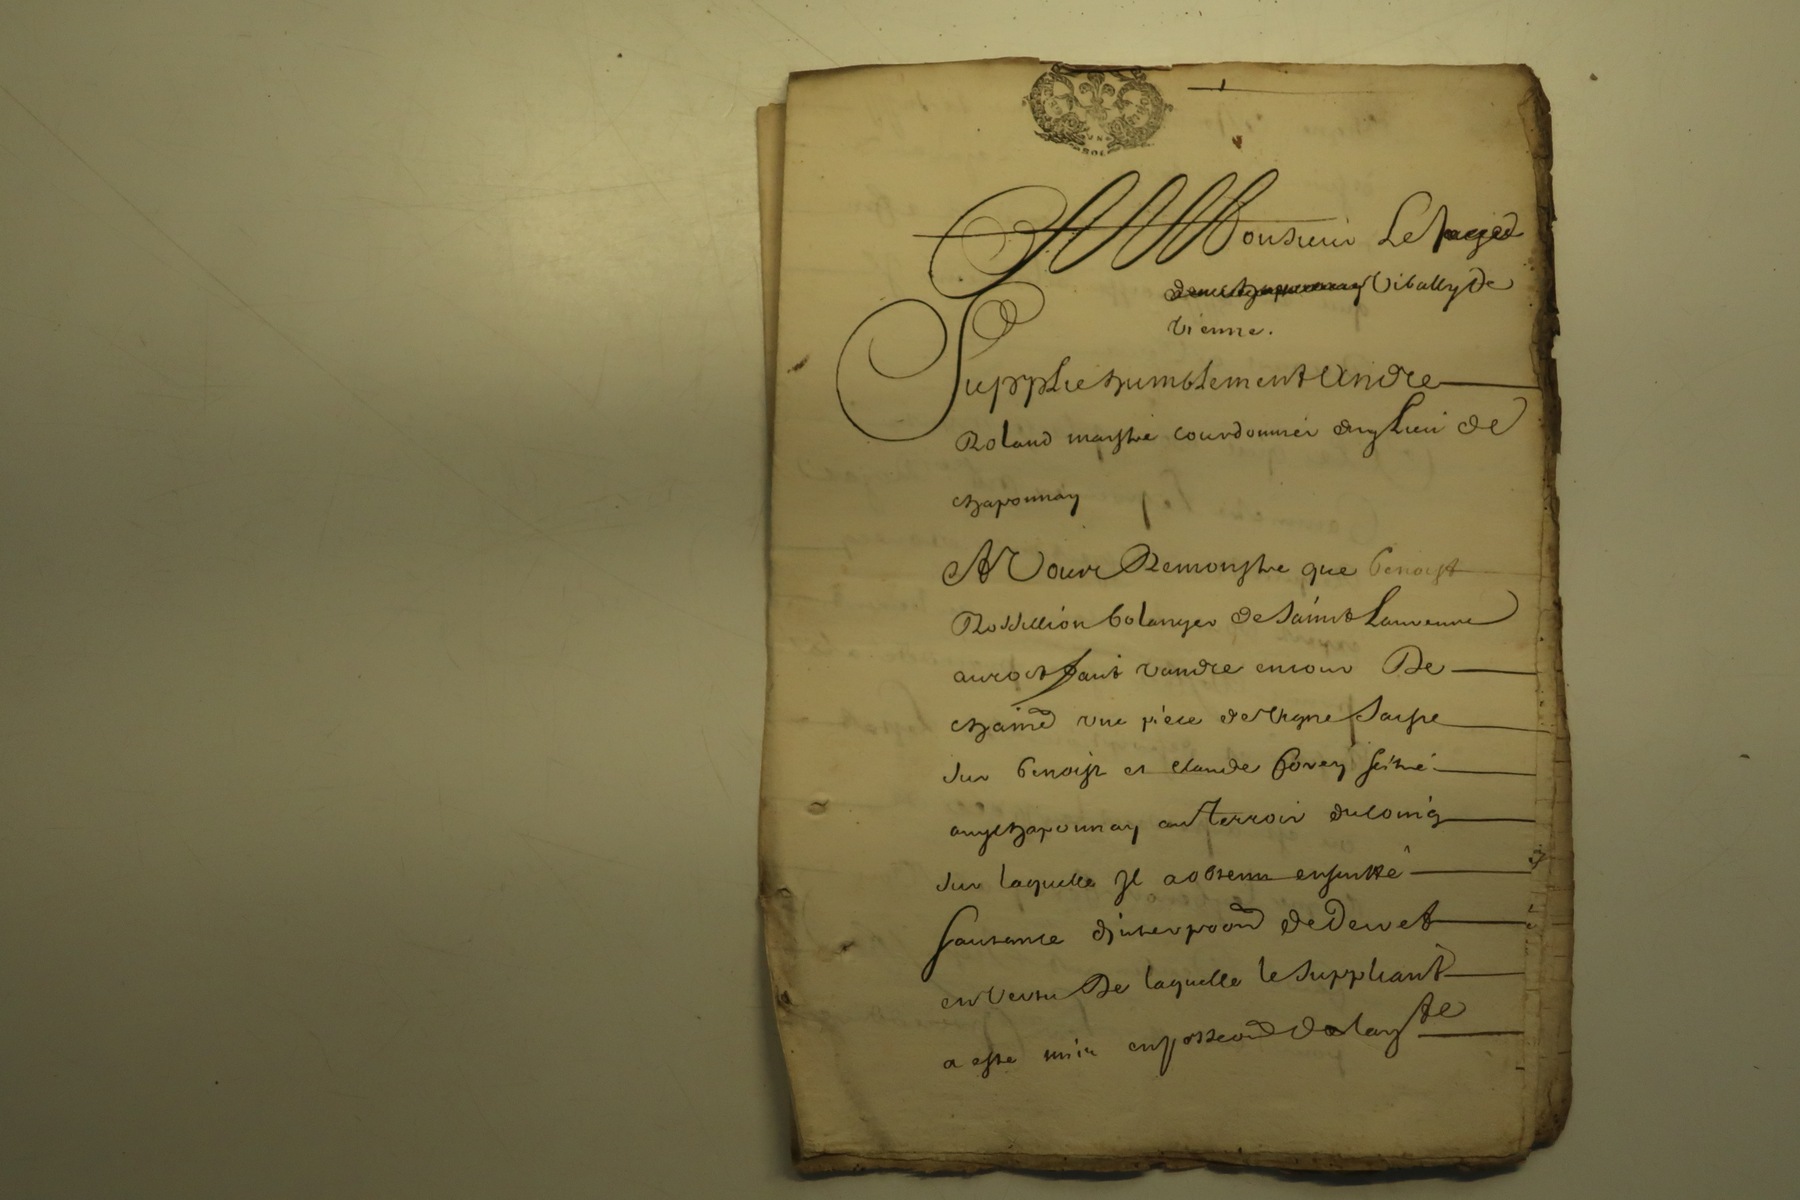 A Monsieur Le Juge
Vibally de
vienne.
Supplie humblement Andre
Roland maistre courdonnier du lieu de
chaponnay
A Vous Remonstre que benoist
Rossillion bolanger de Saint Laurenne
a vandre en cour De
une piece de vigne saisie
sur benoist et claude
au chaponnay au terroir du
sur laquelle Il a obtenu ensuitte
santance d'interpoon de Decret
en vertu De laquelle le suppliant
a este mis en posseon de la